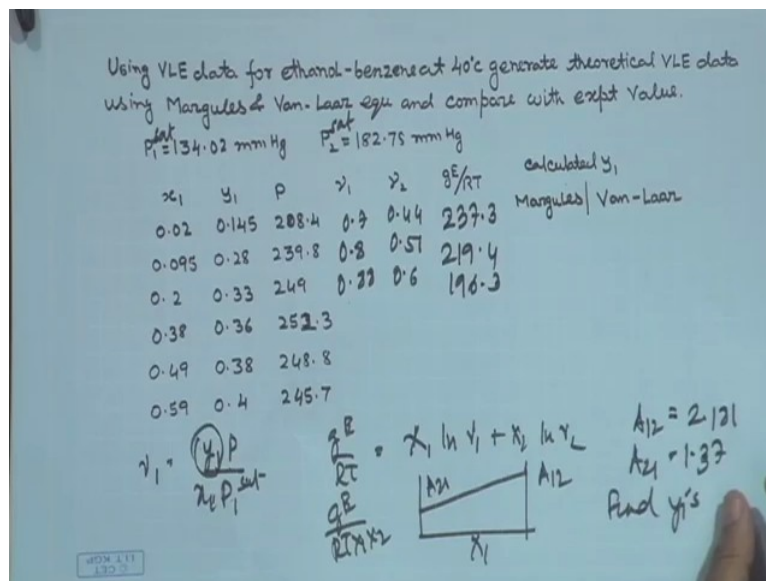 Using VLE data for ethanol-benzene at 40°c generate theoretical VLE data
using Margules & Van-Laar equ and compare with expt Value.
P₁ˢᵃᵗ = 134.02 mm Hg P₂ˢᵃᵗ = 182.75 mm Hg
calculated y₁
x₁ y₁ P γ₁ γ₂ gᴱ/RT
Margules | Van-Laar
0.02 0.145 208.4 0.7 0.44 237.3
0.095 0.28 239.8 0.8 0.51 219.4
0.2 0.33 249 0.6 196.3
0.38 0.36 252.3
0.49 0.38 248.8
0.59 0.4 245.7
γ₁ = y₁P / x₁P₁ˢᵃᵗ
gᴱ/RT = x₁ ln γ₁ + x₂ ln γ₂
A₁₂ = 2.121
A₂₁ = 1.37
Find yᵢ's
A₂₁ A₁₂
gᴱ/RTx₁x₂
x₁
© CET
I.I.T. KGP